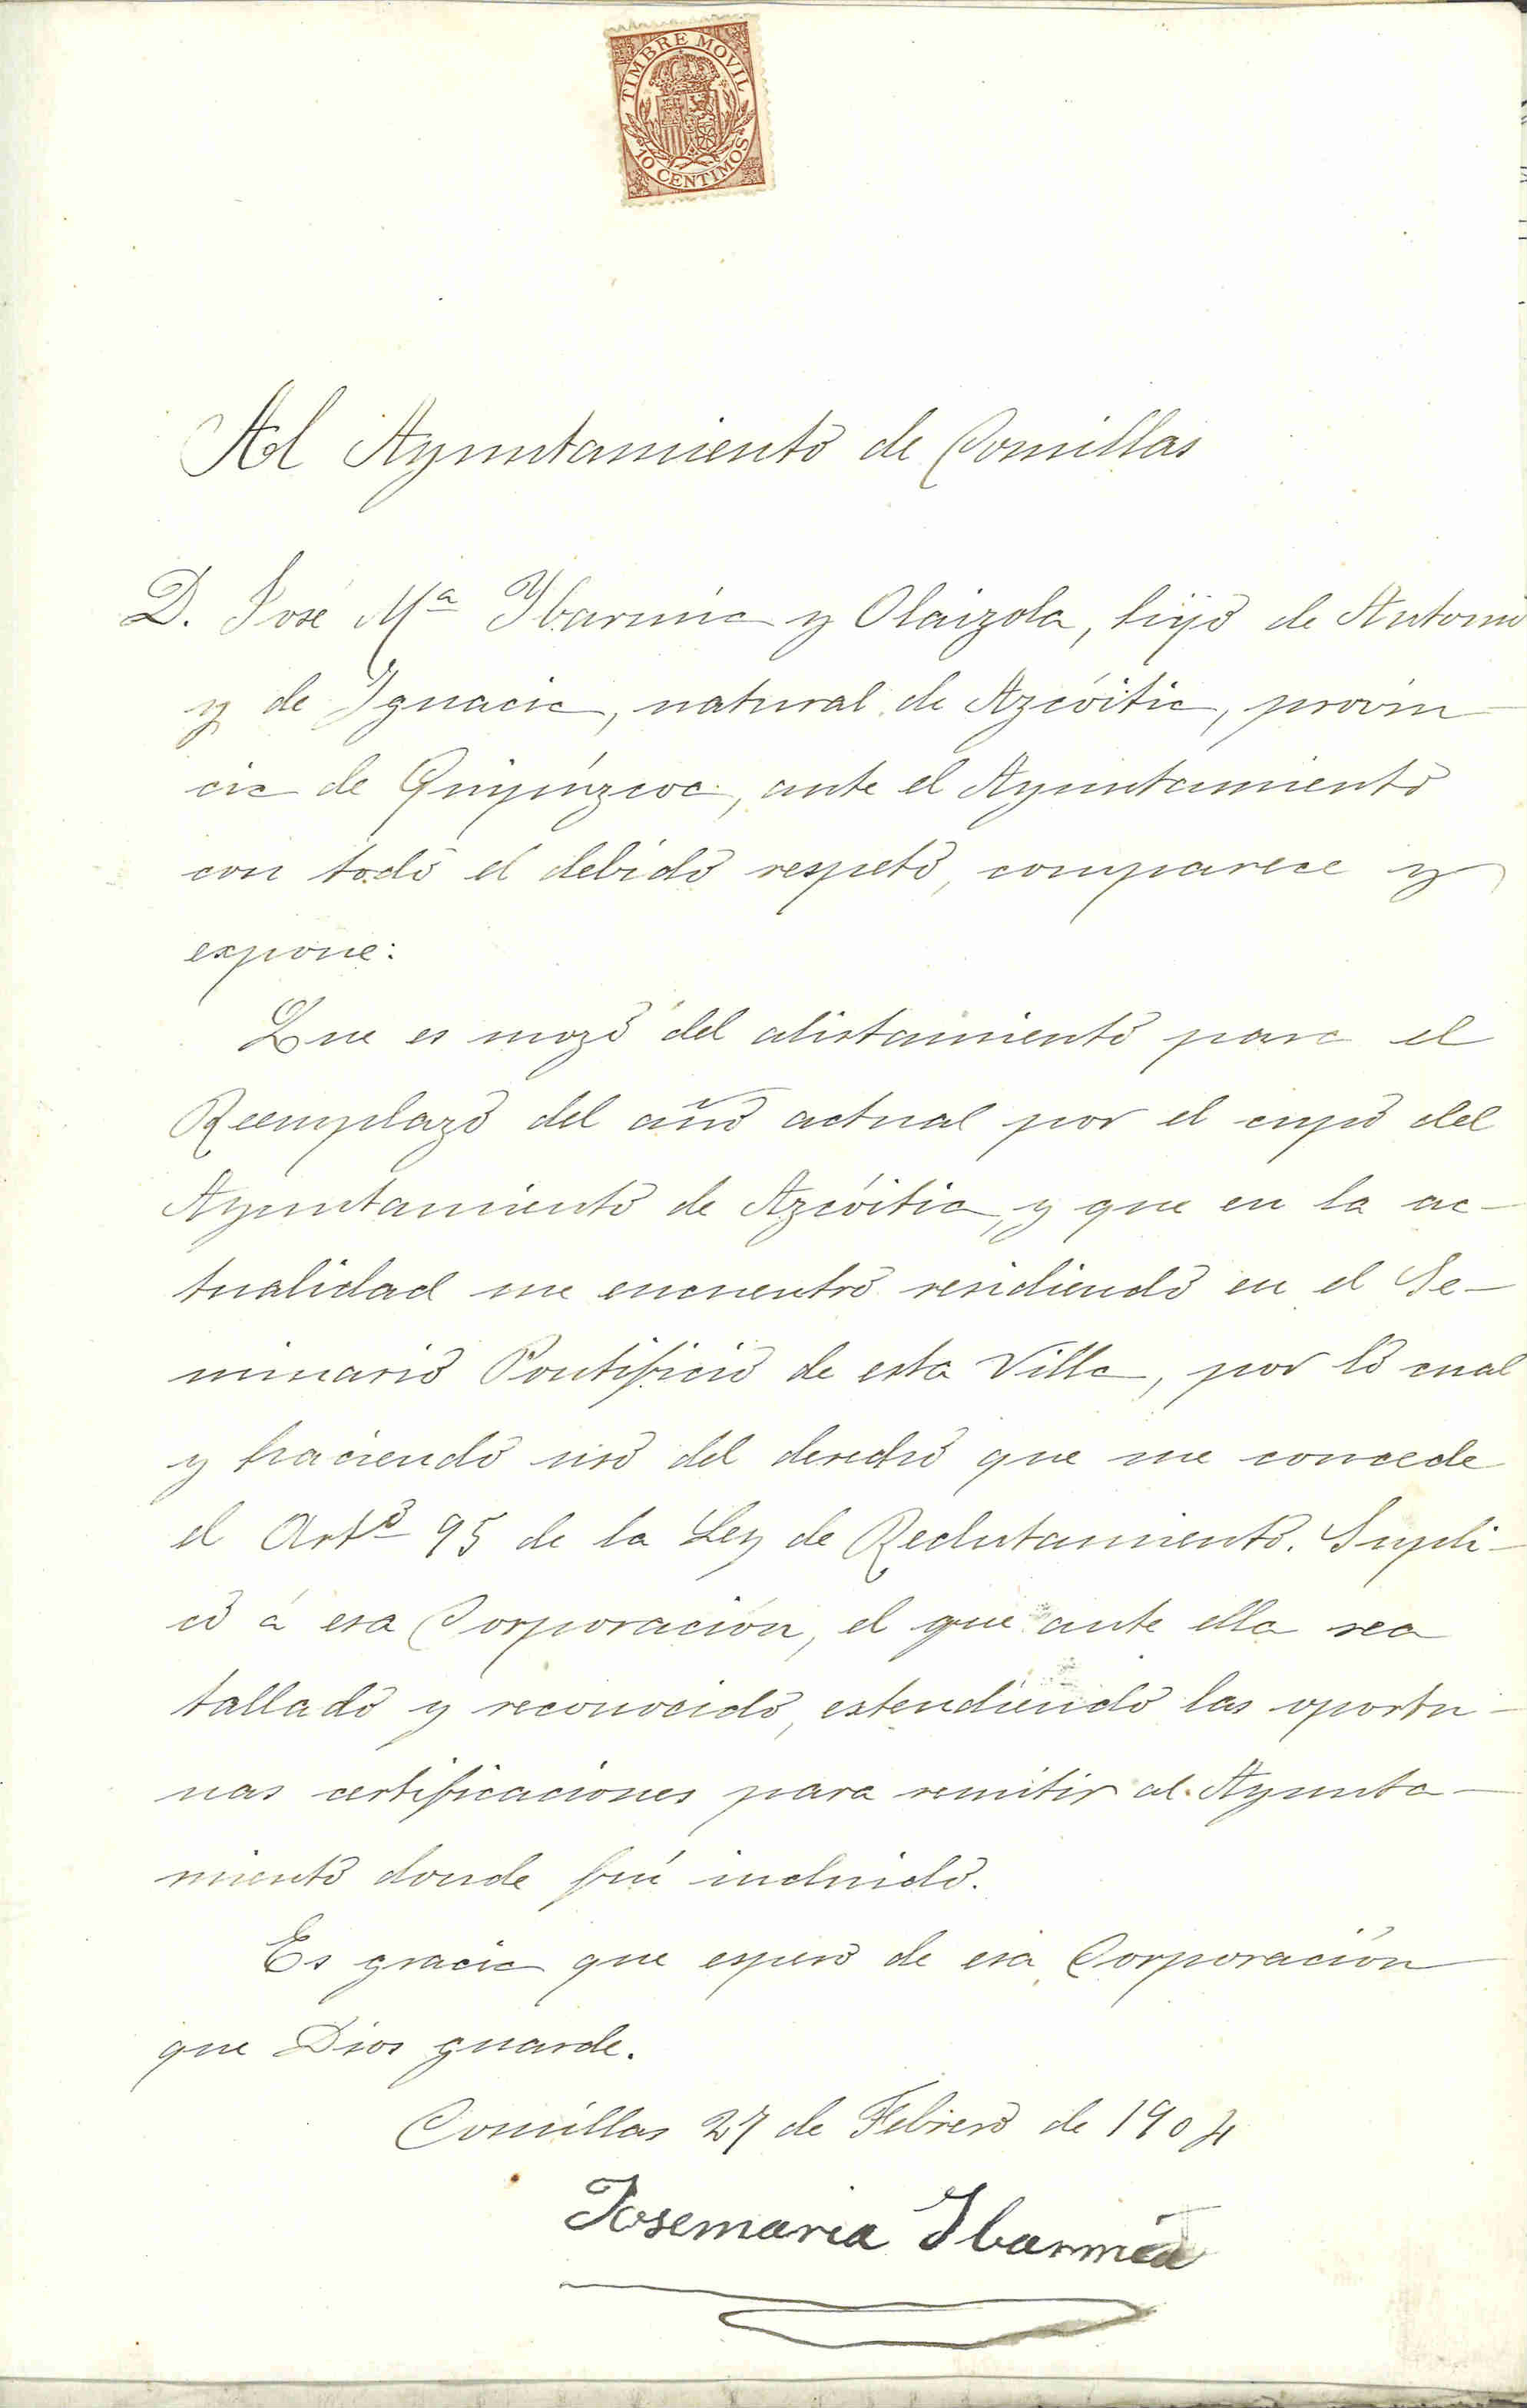 TIMBRE MOVIL
10 CENTIMOS
Al Ayuntamiento de Comillas
D. José Mª Ybarmia y Olaizola, hijo de Antonio
y de Ignacia, natural de Azcóitia, provin-
cia de Guipúzcoa, ante el Ayuntamiento
con todo el debido respeto, comparece y
expone:
Que es mozo del alistamiento para el
Reemplazo del año actual por el cupo del
Ayuntamiento de Azcóitia, y que en la ac-
tualidad me encuentro residiendo en el Se-
minario Pontificio de esta Villa, por lo cual
y haciendo uso del derecho que me concede
el Artº 95 de la Ley de Reclutamiento. Supli-
co á esa Corporación, el que ante ella sea
tallado y reconocido, estendiendo las oportu-
nas certificaciones para remitir al Ayunta-
miento donde fué incluido.
Es gracia que espero de esa Corporación
que Dios guarde.
Comillas 27 de Febrero de 1904
Josemaria Ibarmia